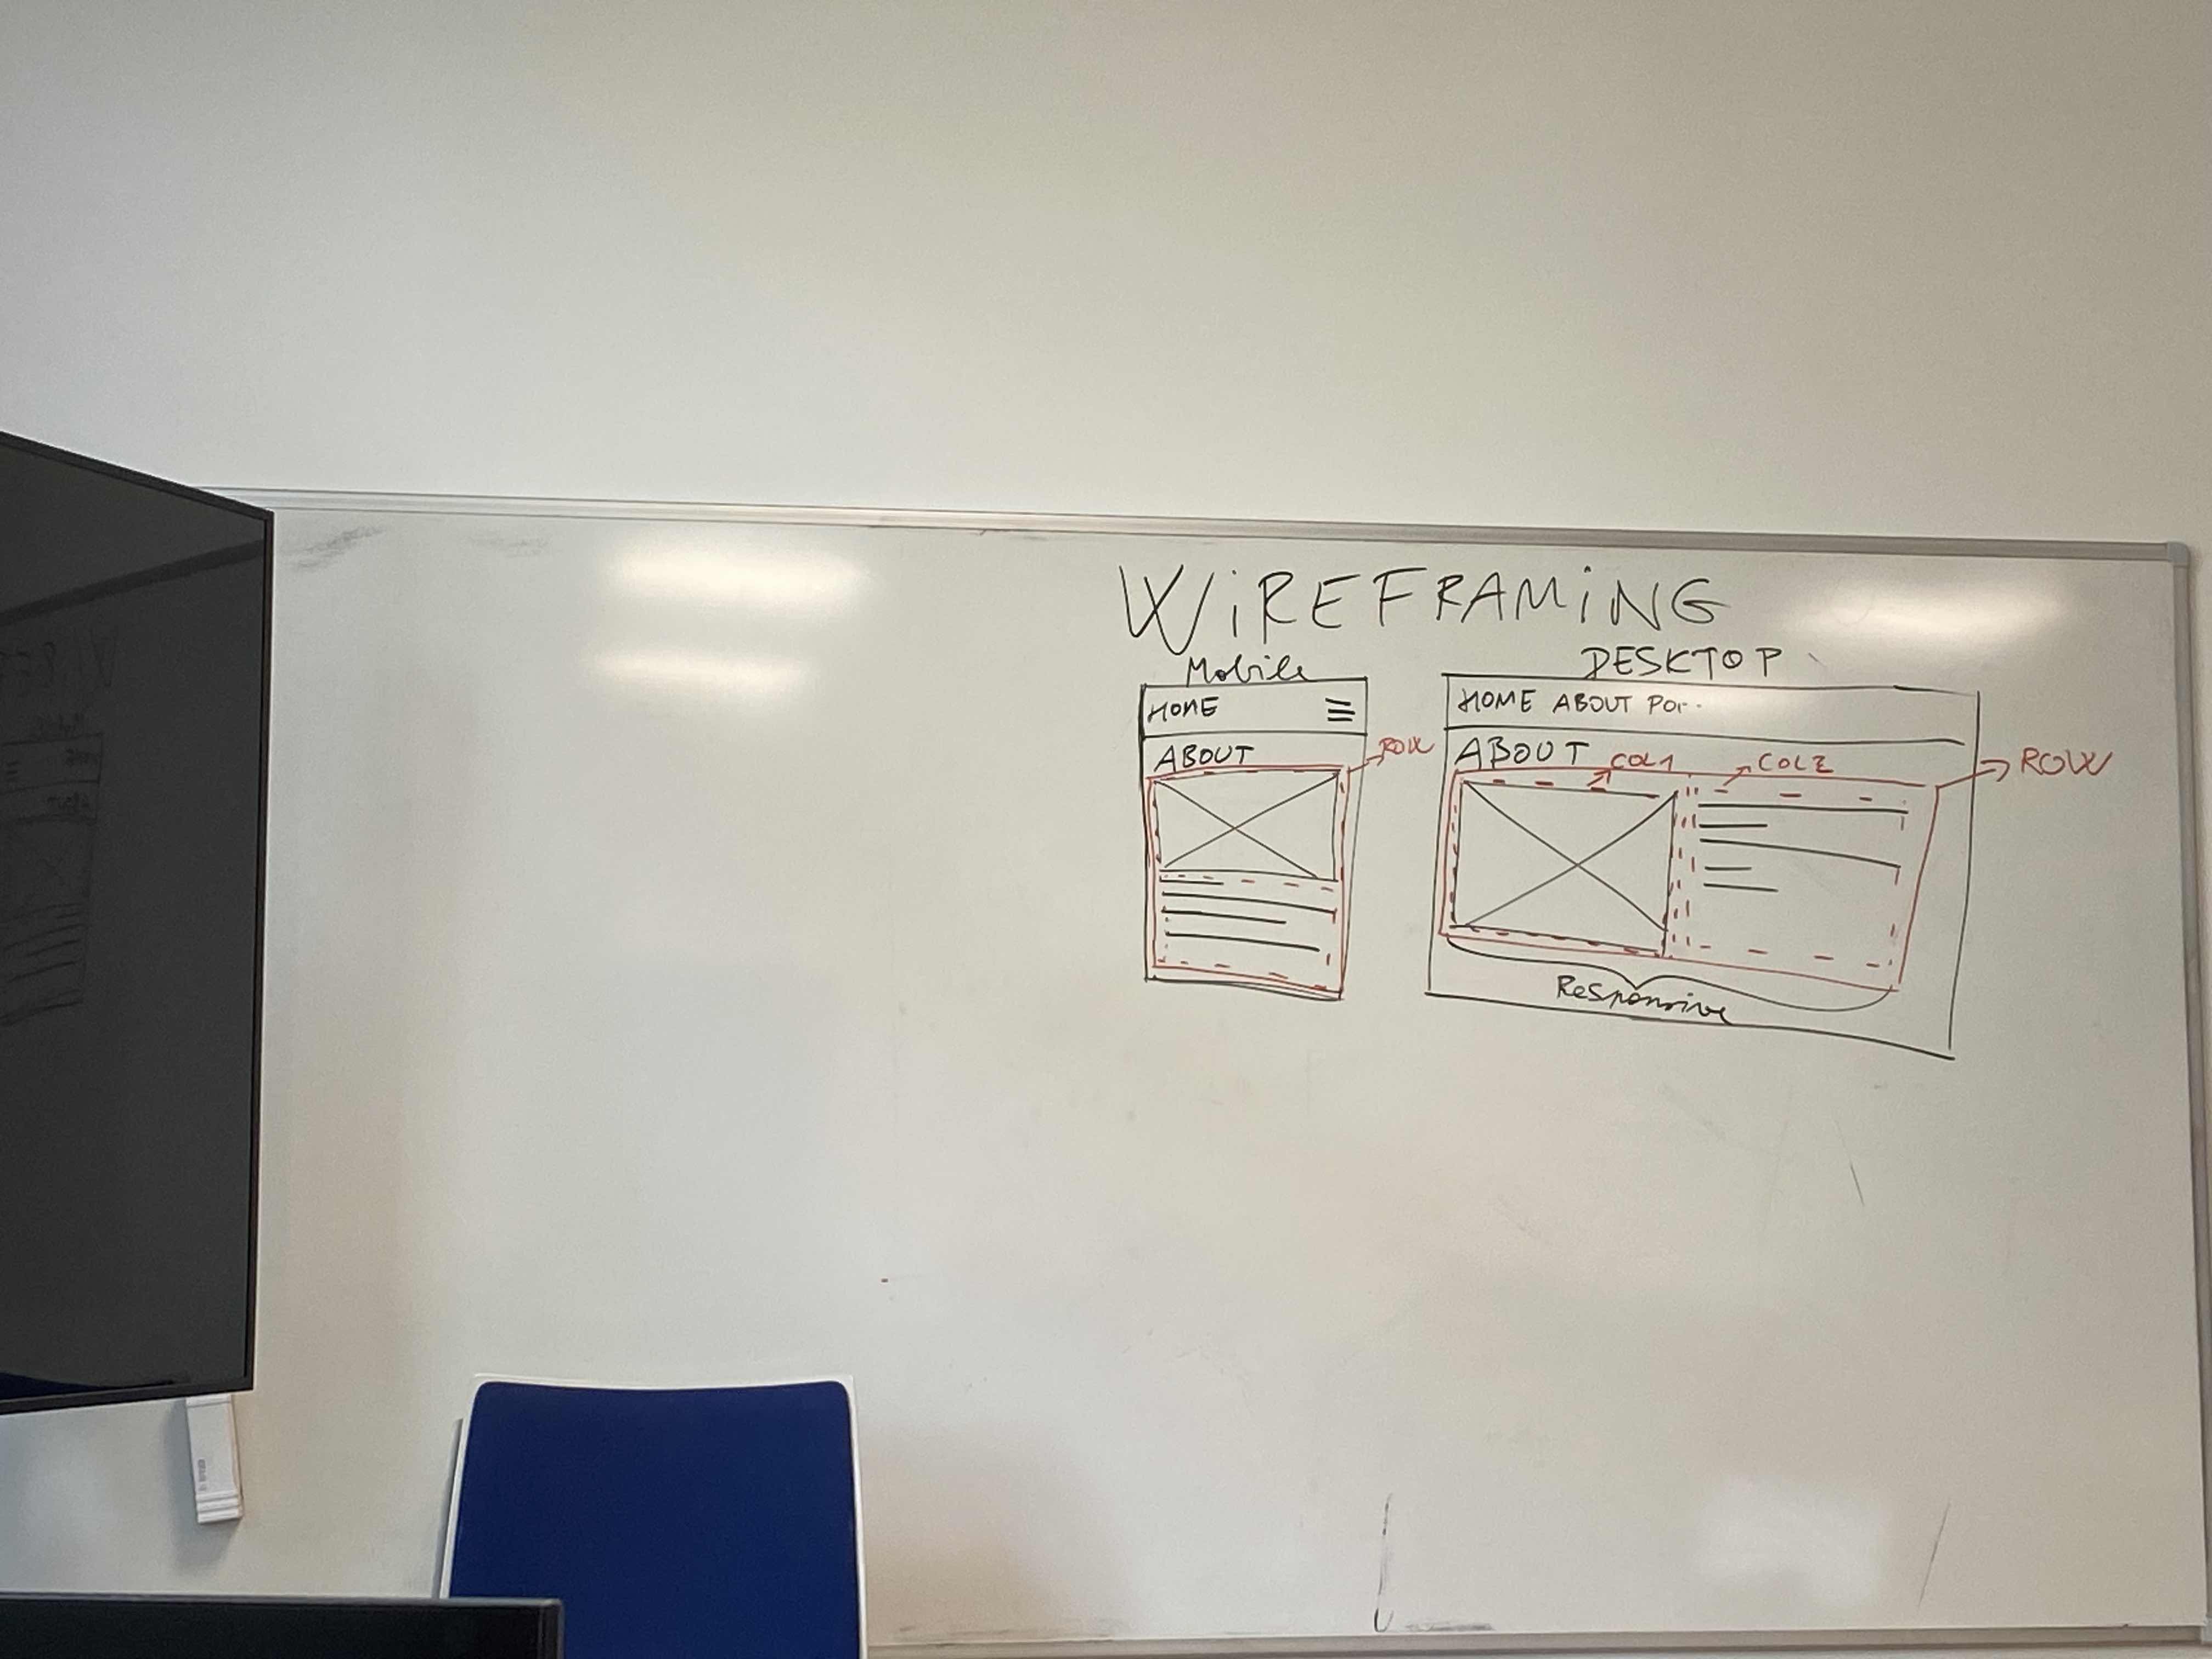 WiREFRAMiNG
Mobile
HOME
ABOUT
ROW
DESKTOP
HOME ABOUT Por..
ABOUT
COL1
COL2
ROW
Responsive